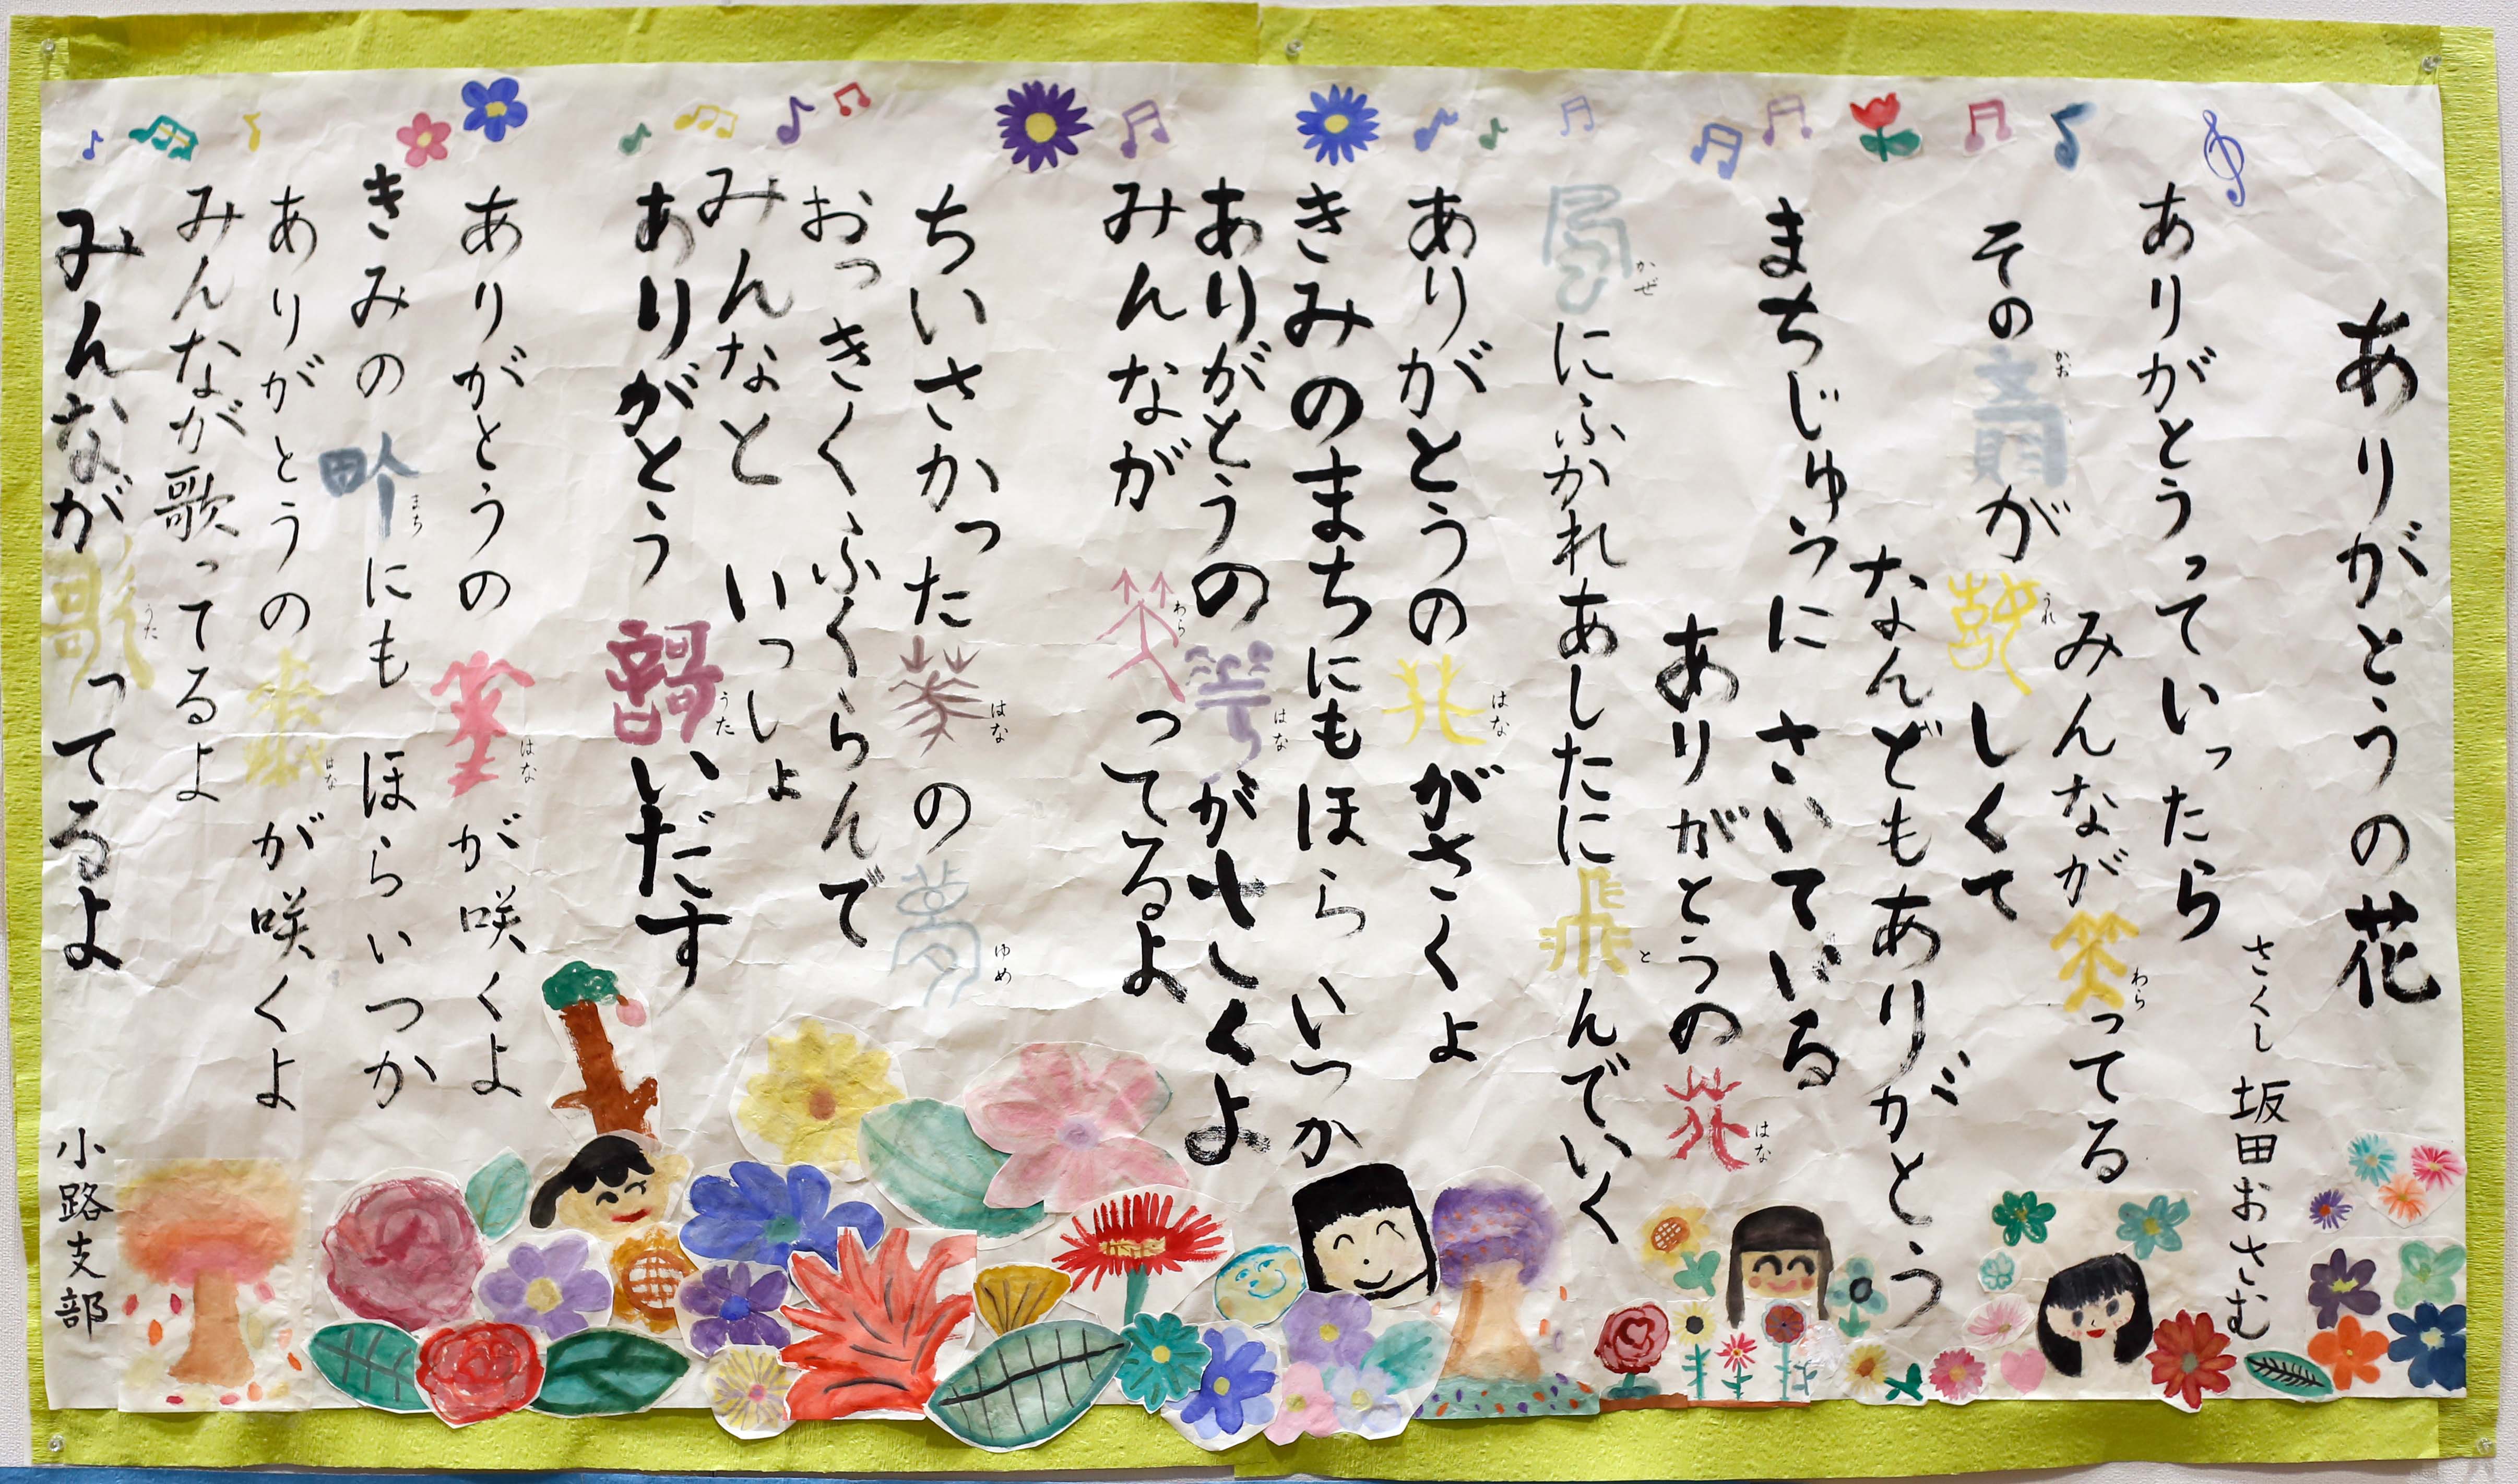 ありがとうの花
さくし 坂田おさむ
ありがとうっていったら
みんなが笑ってる
わら
その顔が嬉しくて
かお うれ
なんどもありがとう
まちじゅうに さいている
ありがとうの花
はな
風にふかれあしたに飛んでいく
かぜ と
ありがとうの花がさくよ
はな
きみのまちにもほら いつか
ありがとうの花がさくよ
はな
みんなが笑ってるよ
わら
ちいさかった花の夢
はな ゆめ
おっきくふくらんで
みんなと いっしょ
ありがとう歌いだす
うた
ありがとうの花が咲くよ
はな
きみの町にも ほらいつか
まち
ありがとうの花が咲くよ
はな
みんなが歌ってるよ
みんなが歌ってるよ
うた
小路支部